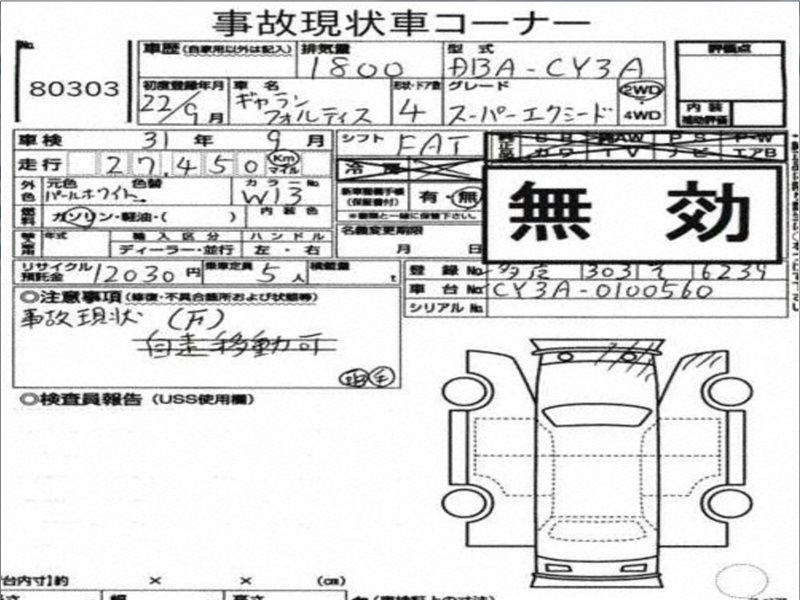 事故現状車コーナー
No.
80303
車歴 (自家用以外は記入)
排気量
1800
型式
DBA-CY3A
評価点
初度登録年月
22/9月
車名
ギャラン
フォルティス
形状・ドア数
4
グレード
スーパーエクシード
2WD
・
4WD
内装
補助評価
車検 31年 9月
シフト FAT
走行 27,450 Km マイル
冷房
AW PS P・W
カワ TV ナビ エアB
外色
元色 色替
パールホワイト
カラーNo.
W13
新車整備手帳
(保証書付)
有・無
※書類と一緒に保管下さい。
無効
燃料
ガソリン・軽油・( )
内装色
名義変更期限
月 日
年式
輸入区分
ハンドル
ディーラー・並行
左・右
リサイクル
預託金
12030円
乗車定員
5人
積載量
t
登録No.
多摩 303 そ 6239
車台No.
CY3A-0100560
シリアルNo.
◎注意事項 (修復・不具合箇所および状態等)
事故現状 (F)
自走移動可
◎検査員報告 (USS使用欄)
台内寸】約 × × (cm)
長さ 幅 高さ